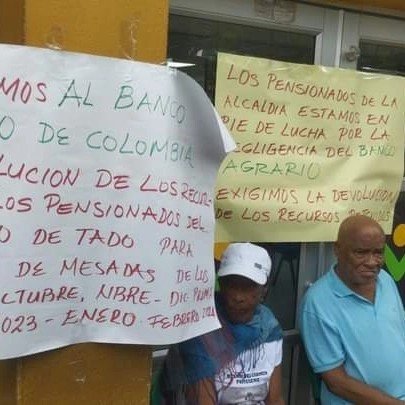 MOS AL BANCO
O DE COLOMBIA
LUCION DE LOS RECUR-
LOS PENSIONADOS DEL
O DE TADO PARA
DE MESADAS DE LOS
CTUBRE, NBRE - DIC PRIMA
2023 - ENERO FEBRERO
LOS PENSIONADOS DE LA
ALCALDIA ESTAMOS EN
PIE DE LUCHA POR LA
NEGLIGENCIA DEL BANCO
AGRARIO
EXIGIMOS LA DEVOLUCION
DE LOS RECURSOS